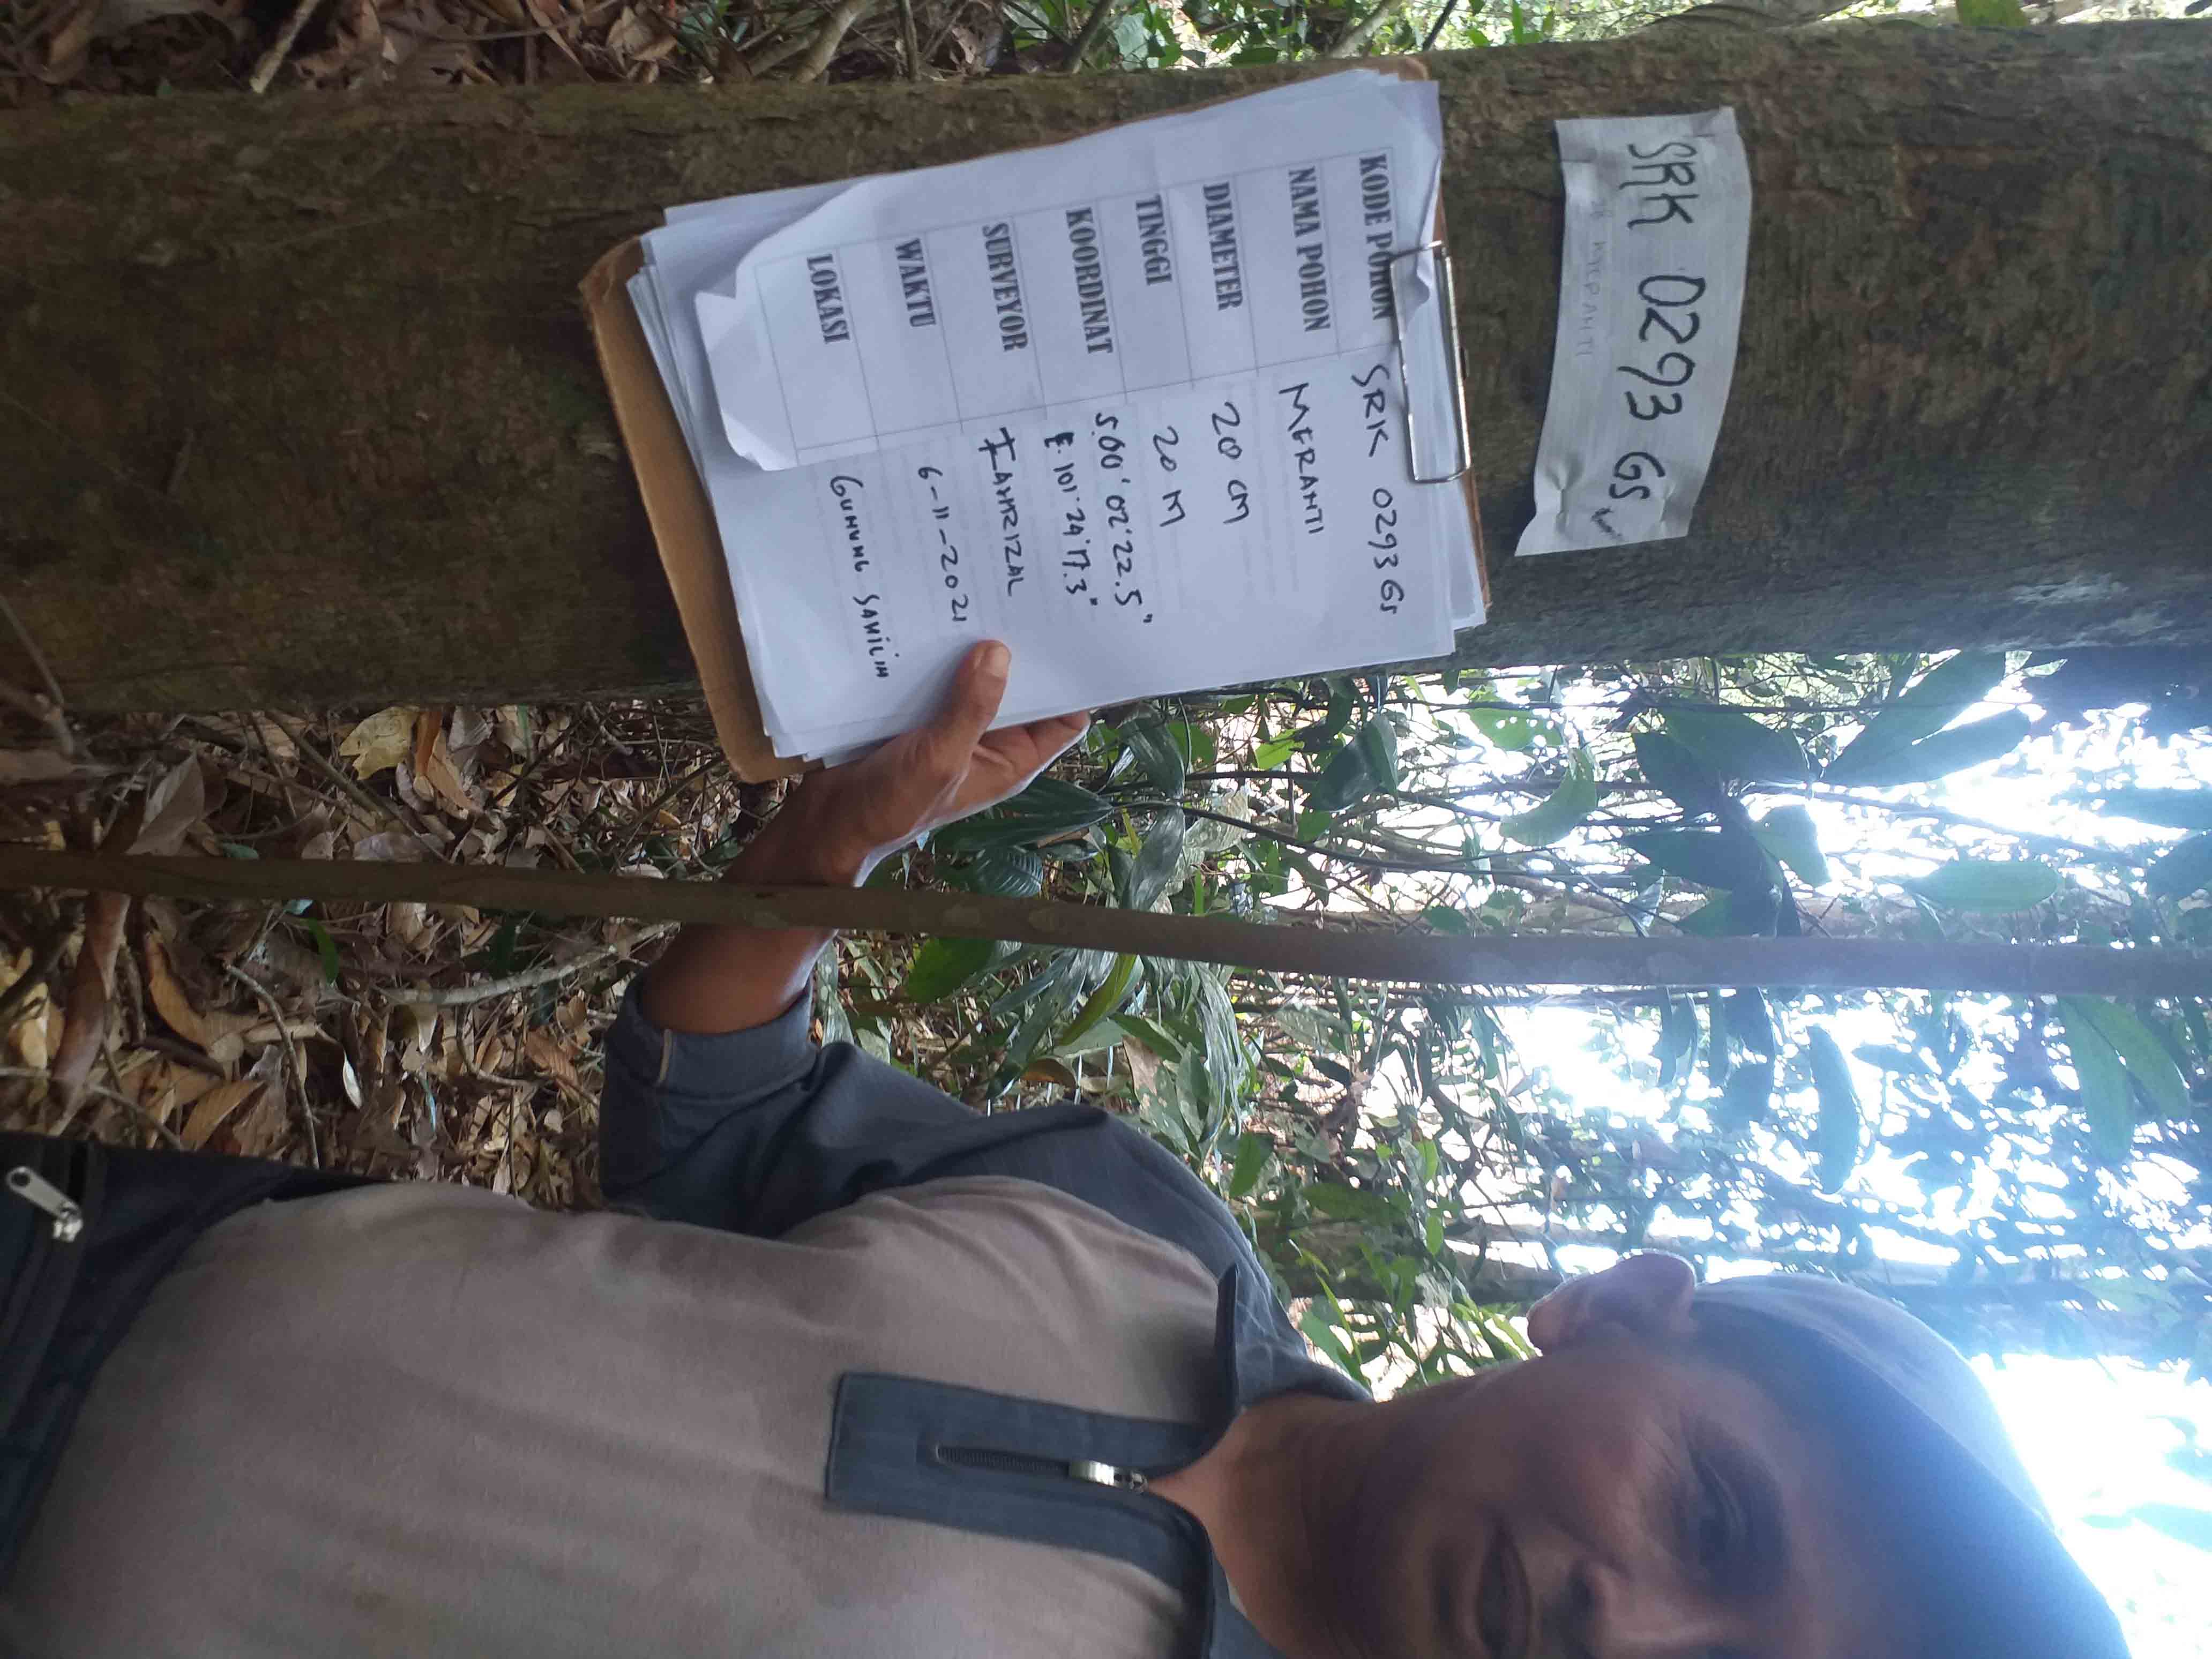 SRK 0293 GS
28 MERANTI
KODE POHON SRK 0293 GS
NAMA POHON MERANTI
DIAMETER 20 CM
TINGGI 20 M
KOORDINAT S.00°02'22.5"
E.101°24'17.3"
SURVEYOR FAHRIZAL
WAKTU 6-11-2021
LOKASI GUNUNG SAHILIN